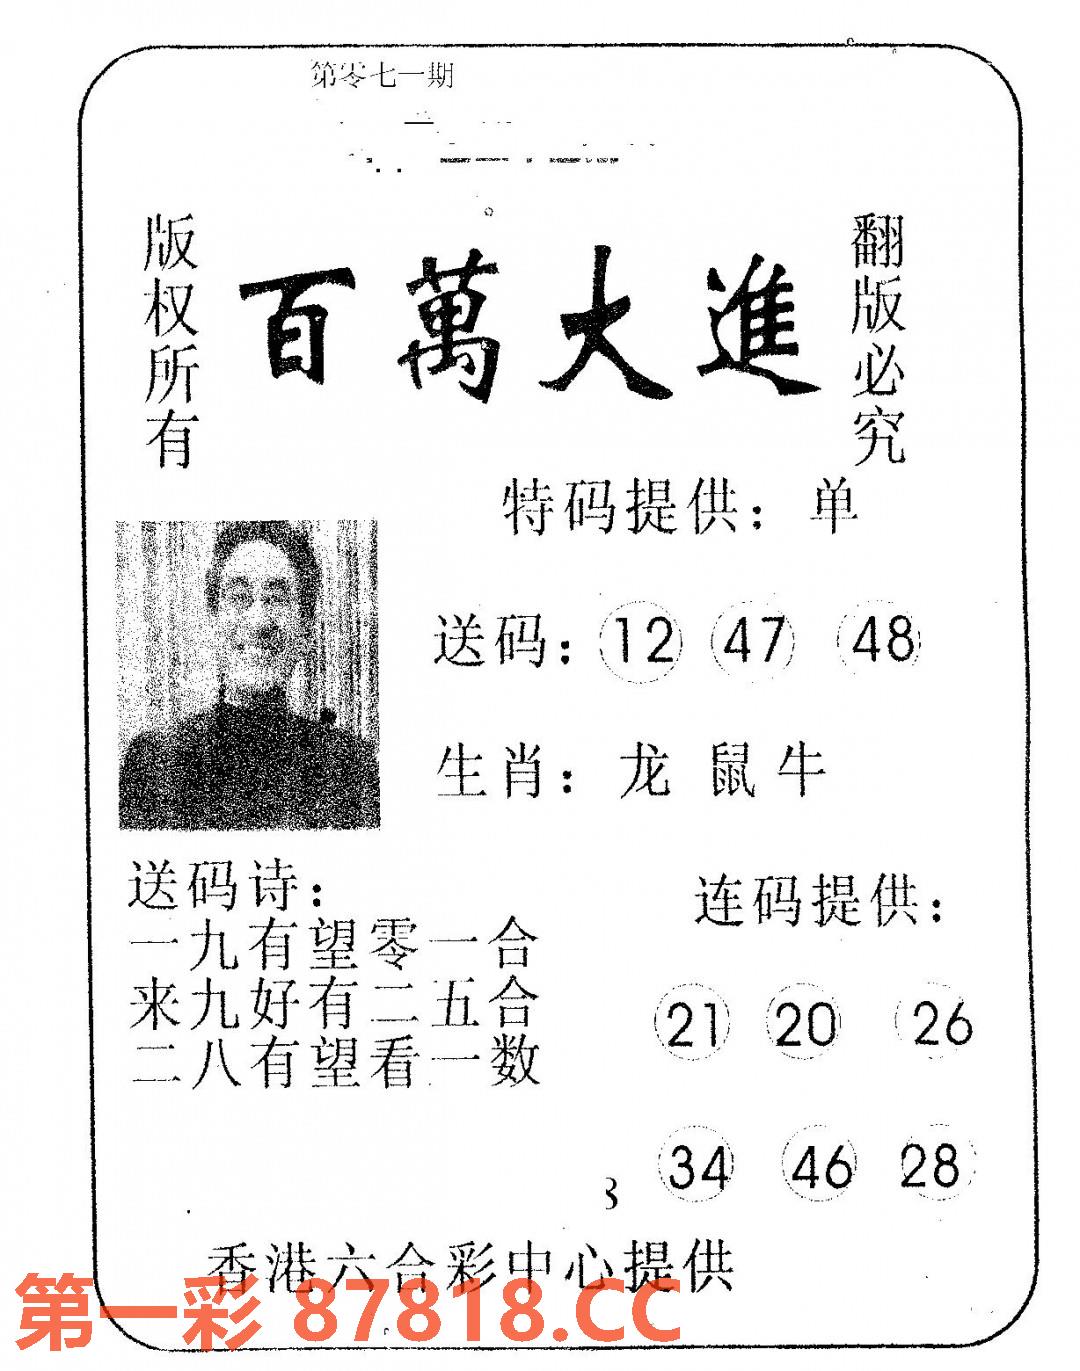 第零七一期
版权所有
百萬大進
翻版必究
特码提供：单
送码：12 47 48
生肖：龙 鼠 牛
送码诗：
一九有望零一合
来九好有二五合
二八有望看一数
连码提供：
21 20 26
34 46 28
香港六合彩中心提供
第一彩 87818.CC